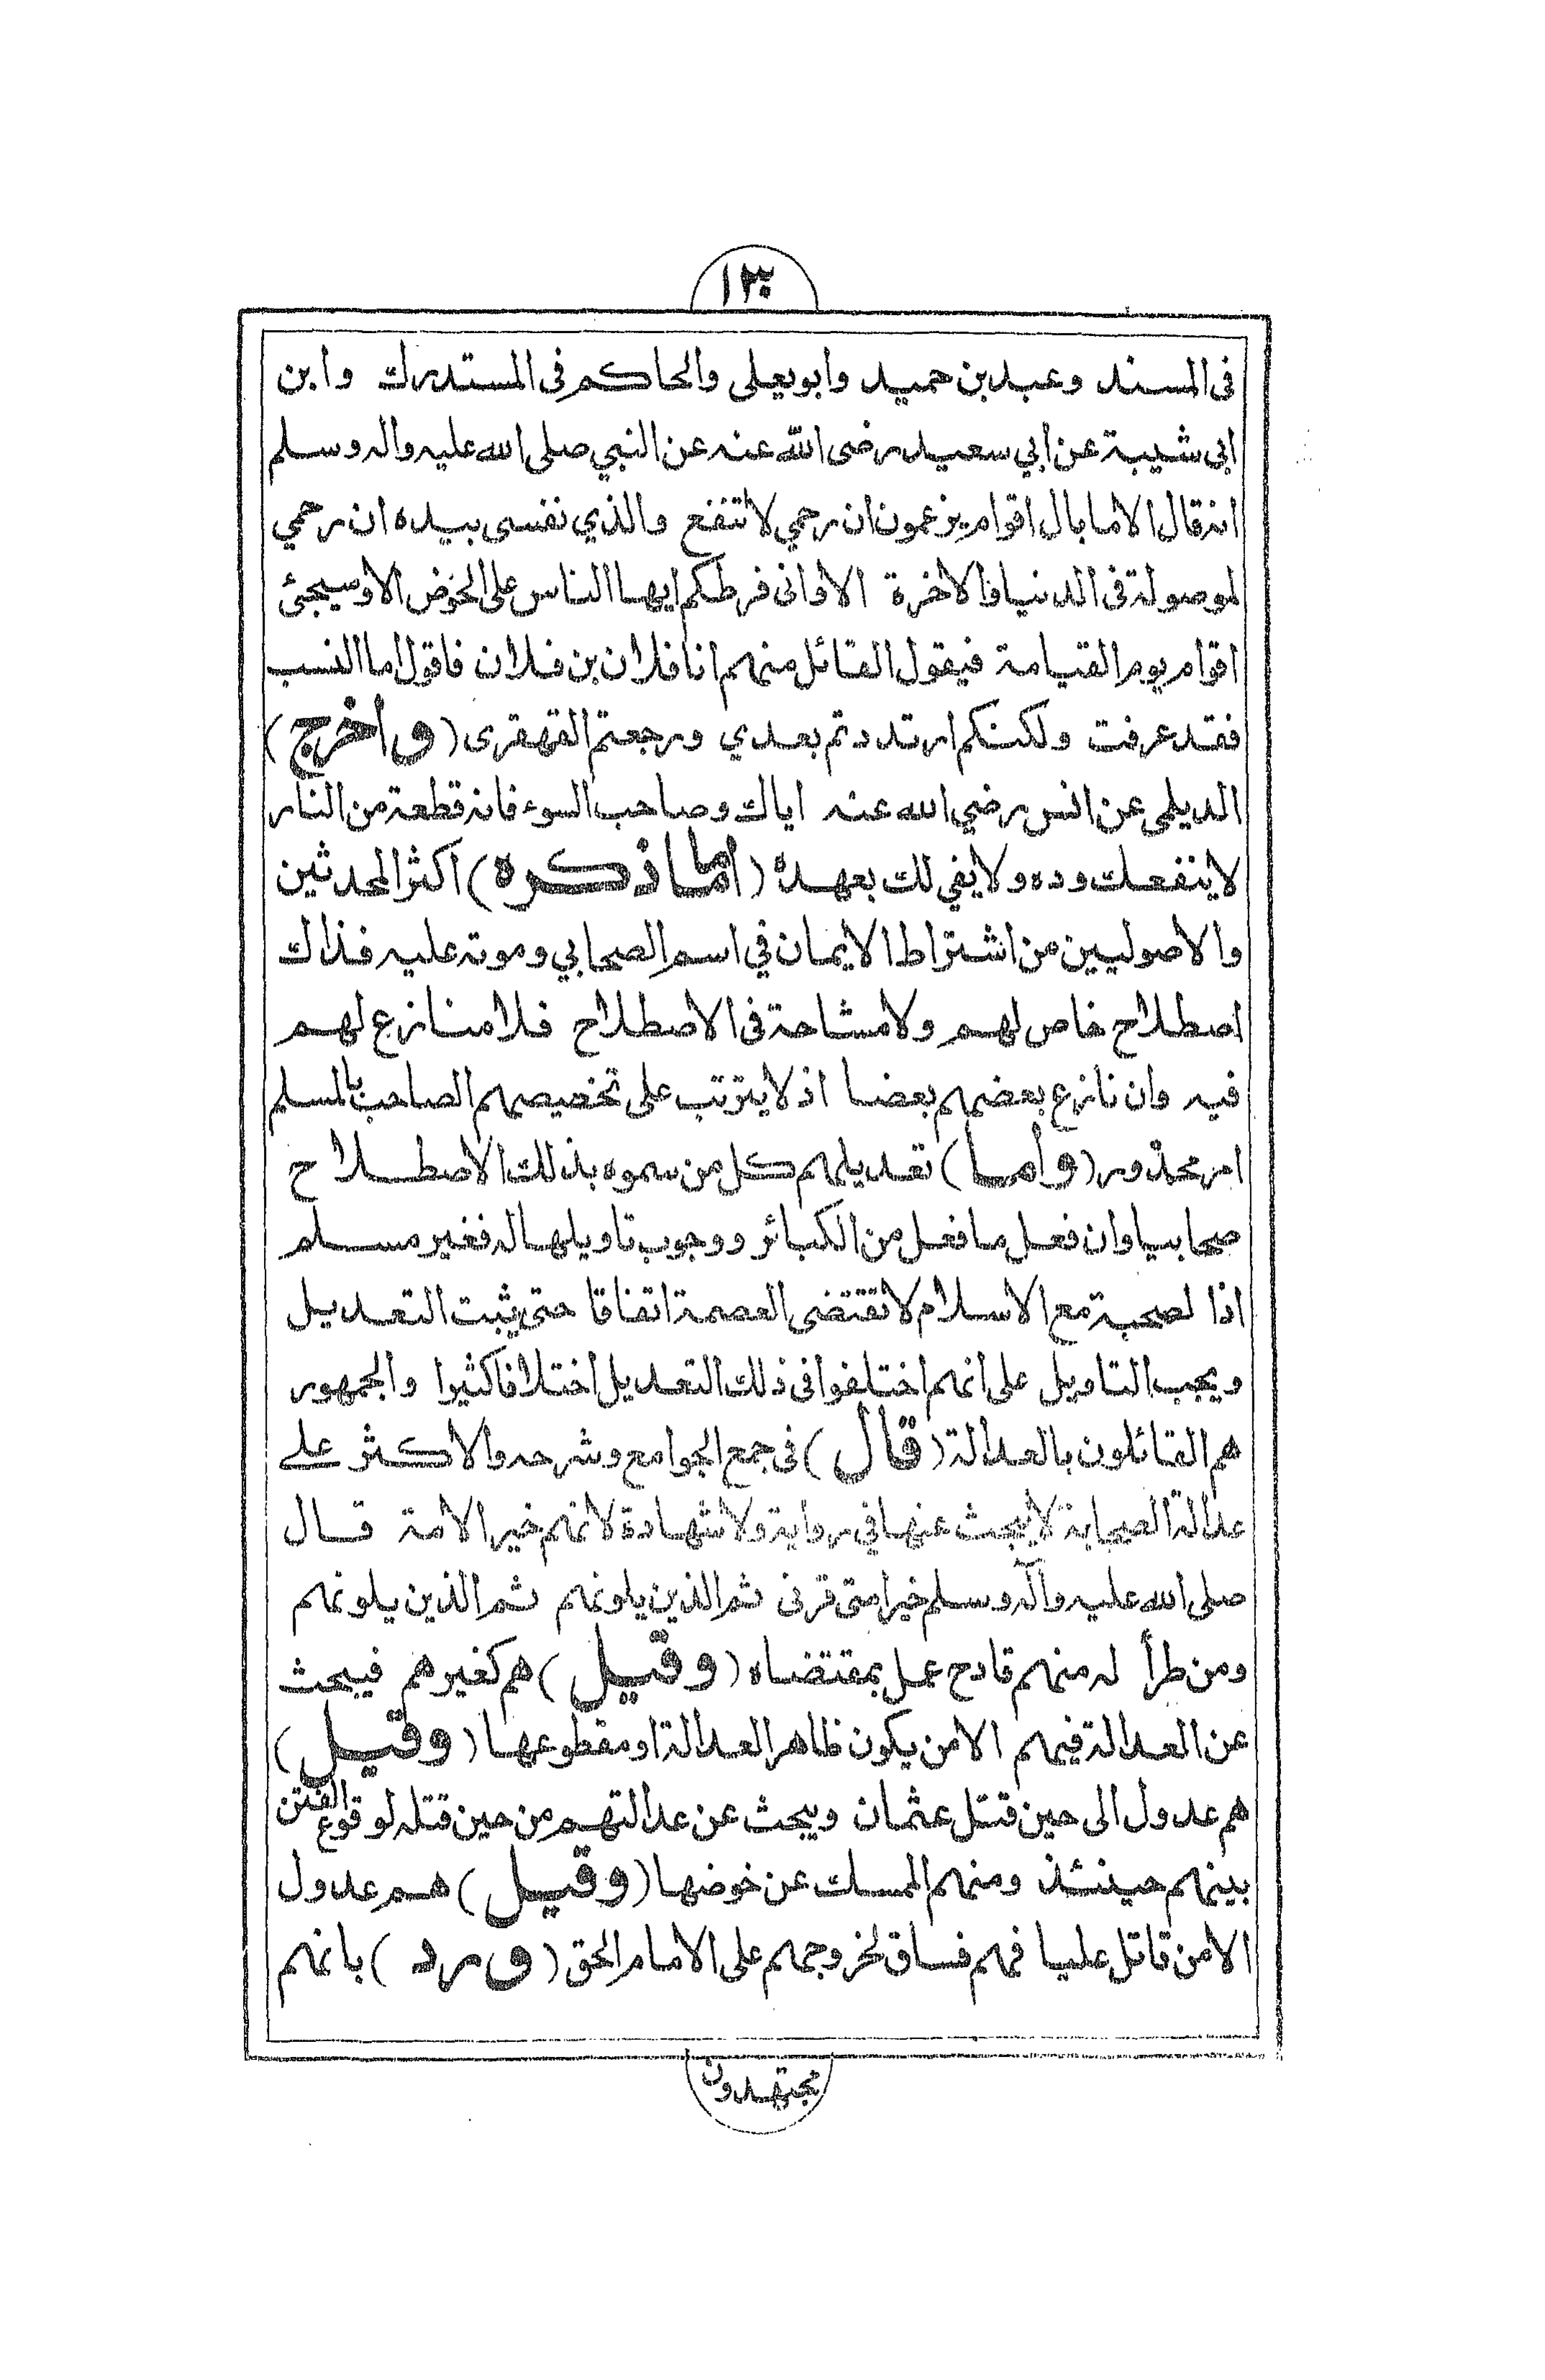 ١٣٠
في المسند وعبد بن حميد وابو يعلى والحاكم في المستدرك وابن
ابي شيبة عن ابي سعيد رضى الله عنه عن النبي صلى الله عليه واله وسلم
انه قال الا ما بال اقوام يزعمون ان رحمي لا تنفع والذي نفسى بيده ان رحمي
لموصولة في الدنيا والاخرة الا واني فرطكم ايها الناس على الحوض الا وسيجئ
اقوام يوم القيامة فيقول القائل منهم انا فلان بن فلان فاقول اما النسب
فقد عرفت ولكنكم ارتددتم بعدي ورجعتم القهقرى (واخرج)
الديلمي عن انس رضي الله عنه اياك وصاحب السوء فانه قطعة من النار
لا ينفعك وده ولا يفي لك بعهده (اما ما ذكره) اكثر المحدثين
والاصوليين من اشتراط الايمان في اسم الصحابي وموته عليه فذاك
اصطلاح خاص لهم ولا مشاحة في الاصطلاح فلا منازع لهم
فيه وان نازع بعضهم بعضا اذ لا يترتب على تخصيصهم الصاحب بالمسلم
امر محذور (وأما) تعديلهم كل من سموه بذلك الاصطلاح
صحابيا وان فعل ما فعل من الكبائر ووجوب تاويلها له فغير مسلم
اذا لصحبة مع الاسلام لا تقتضى العصمة اتفاقا حتى يثبت التعديل
ويجب التاويل على انهم اختلفوا في ذلك التعديل اختلافا كثيرا والجمهور
هم القائلون بالعدالة (قال) في جمع الجوامع وشرحه والاكثر على
عدالة الصحابة لا يبحث عنها في رواية ولا شهادة لانهم خير الامة قال
صلى الله عليه وآله وسلم خير امتى قرني ثم الذين يلونهم ثم الذين يلونهم
ومن طرأ له منهم قادح عمل بمقتضاه (وقيل) هم كغيرهم فيبحث
عن العدالة فيهم الا من يكون ظاهر العدالة او مقطوعها (وقيل)
هم عدول الى حين قتل عثمان ويبحث عن عدالتهم من حين قتله لوقوع الفتن
بينهم حينئذ ومنهم الممسك عن خوضها (وقيل) هم عدول
الا من قاتل عليا فهم فساق لخروجهم على الامام الحق (ورد) بانهم
مجتهدون